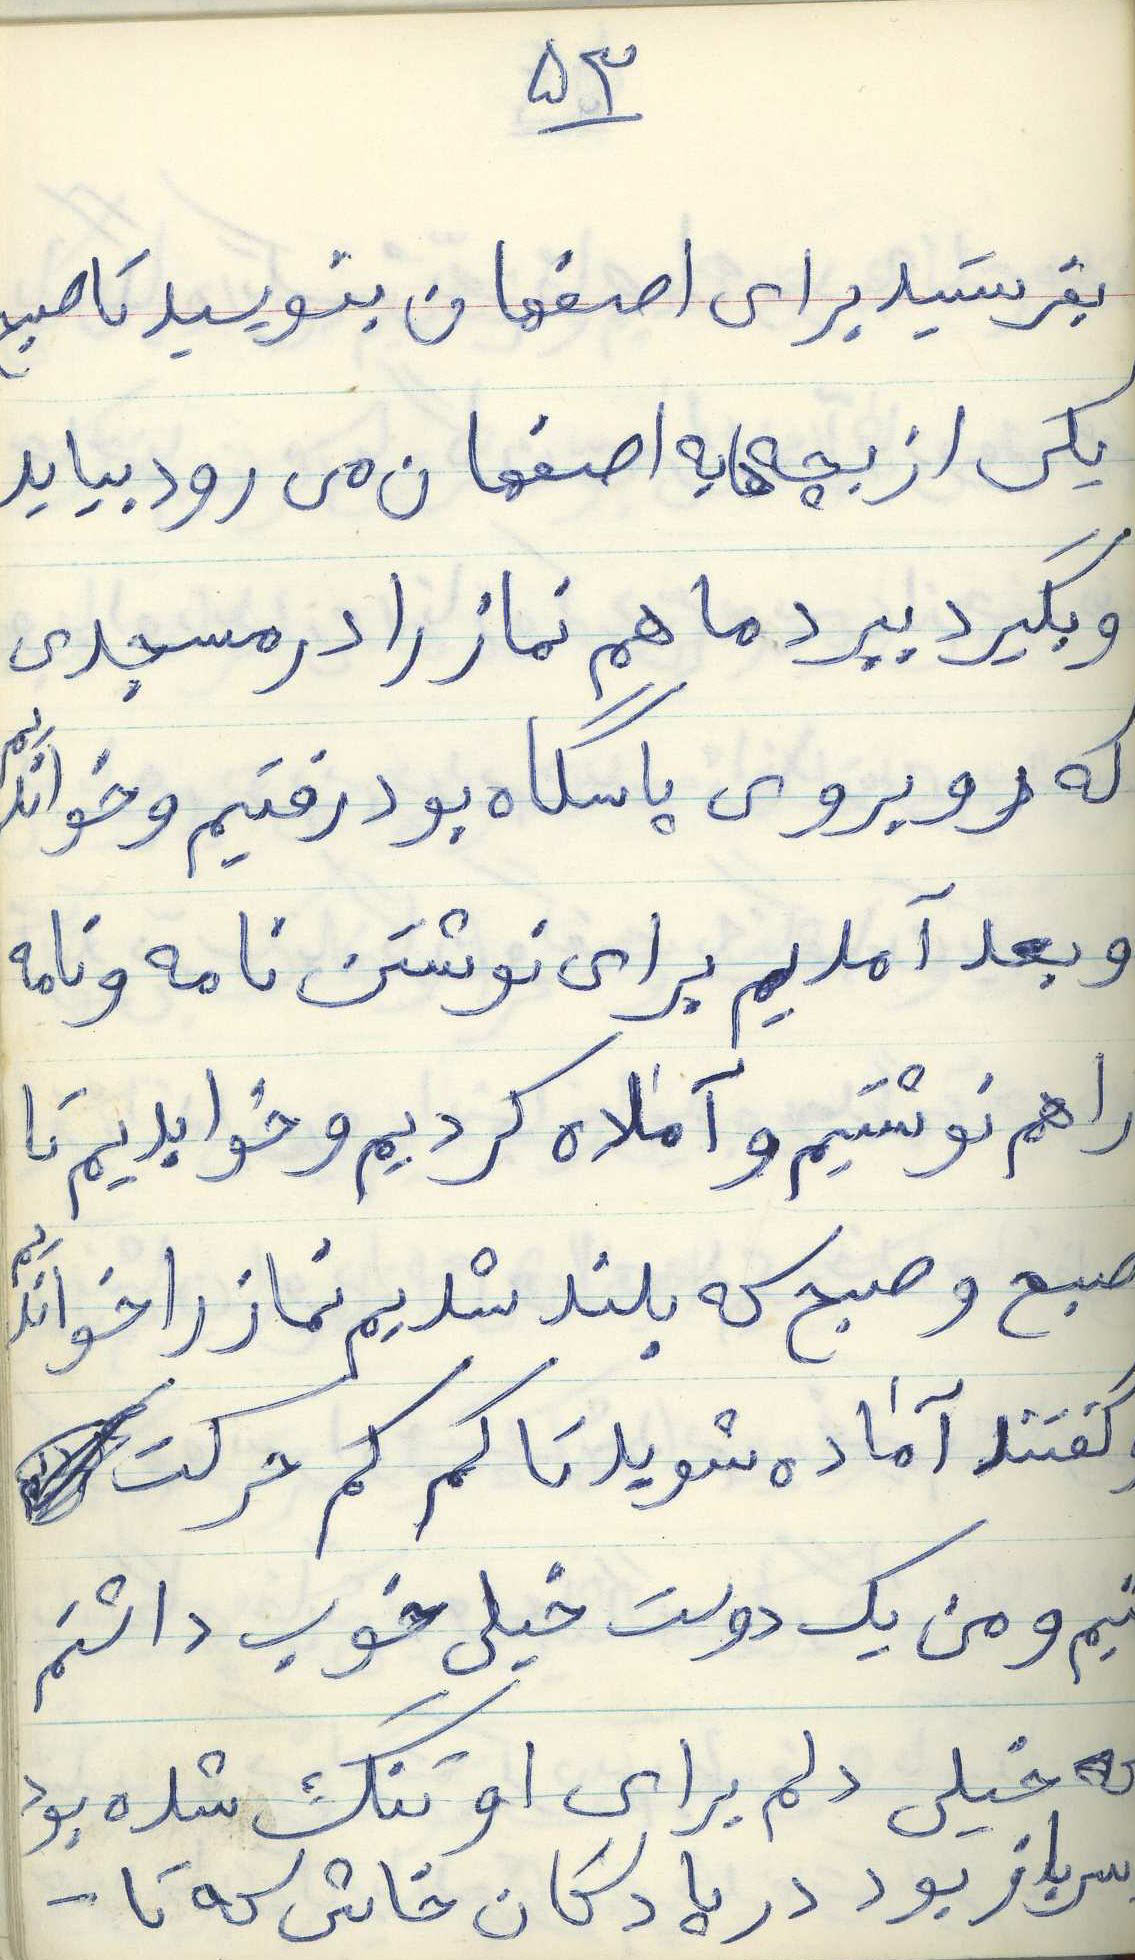 ۵۳
بفرستید برای اصفهان بنویسید تا صبح
یکی از بچه ها به اصفهان می رود بیاید
و بگیرد ببرد ما هم نماز را در مسجدی
که روبروی پاسگاه بود رفتیم و خواندیم
و بعد آمدیم برای نوشتن نامه و نامه
را هم نوشتیم و آماده کردیم و خوابدیم تا
صبع و صبح که بلند شدیم نماز را خواندیم
و گفتند آماده شوید تا کم کم حرکت
کنیم و من یک دوست خیلی خوب داشتم
که خیلی دلم برای او تنگ شده بود
سرباز بود در پادگان خاش که تا -